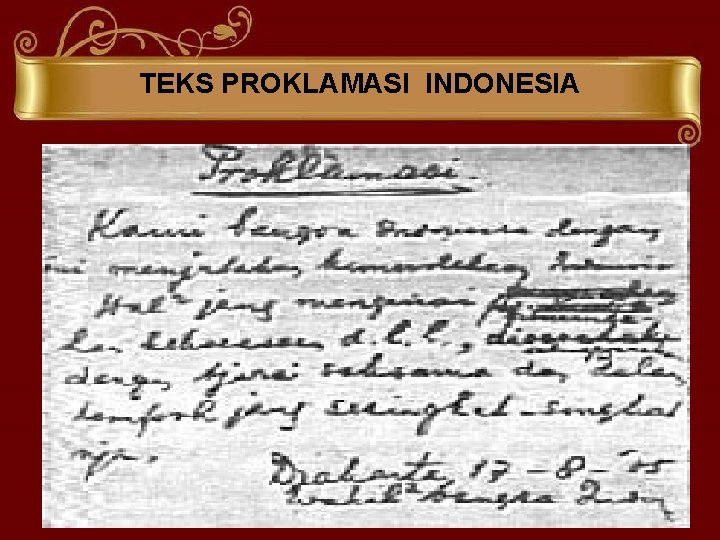 TEKS PROKLAMASI INDONESIA
Proklamasi
Kami bangsa Indonesia dengan
ini menjatakan kemerdekaan Indonesia
Hal² jang mengenai
d.l.l., diselenggarakan
dengan tjara saksama dan dalam
tempoh jang sesingkat-singkat
nja.
Djakarta 17-8-'05
Wakil² bangsa Indon